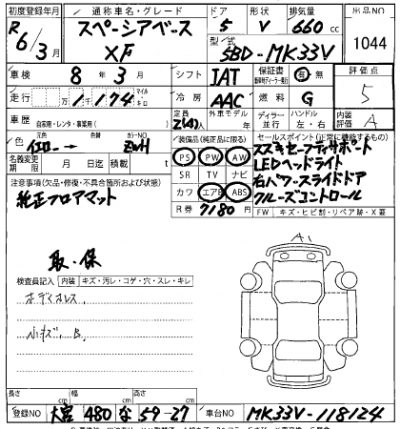 初度登録年月 通称車名・グレード ドア 形状 排気量 出品NO
R6/3月 スペーシアベース XF 5 V 660cc 1044
型式 5BD-MK33V
車検 8年3月 シフト IAT 保証書 有 無 評価点 5
走行 1,174 冷房 AAC 燃料 G
車歴 自家用・レンタ・事業用( ) 定員 2(4)人 外装モデル 年 ディーラー 並行 ハンドル 左・右 内装評価 A
色 元色 イエロー → 色替 カラーNO ZWH 装備品(純正品に限る) セールスポイント(正常に機能するもの)
名義変更期限 月 日迄 積載 t PS PW AW スズキセーフティサポート
注意事項(欠品・修復・不具合箇所および状態) SR TV ナビ LEDヘッドライト
純正フロアマット カワ エアB ABS 右パワースライドドア
R券 7180円 クルーズコントロール
FW キズ・ヒビ割・リペア跡・X要
取・保
検査員記入 内装 キズ・汚レ・コゲ・穴・スレ・キレ
ボディヨゴレ
小キズ、B
A1
長さ cm 幅 cm 高さ cm
登録NO 大宮 480 な 59-27 車台NO MK33V-118124